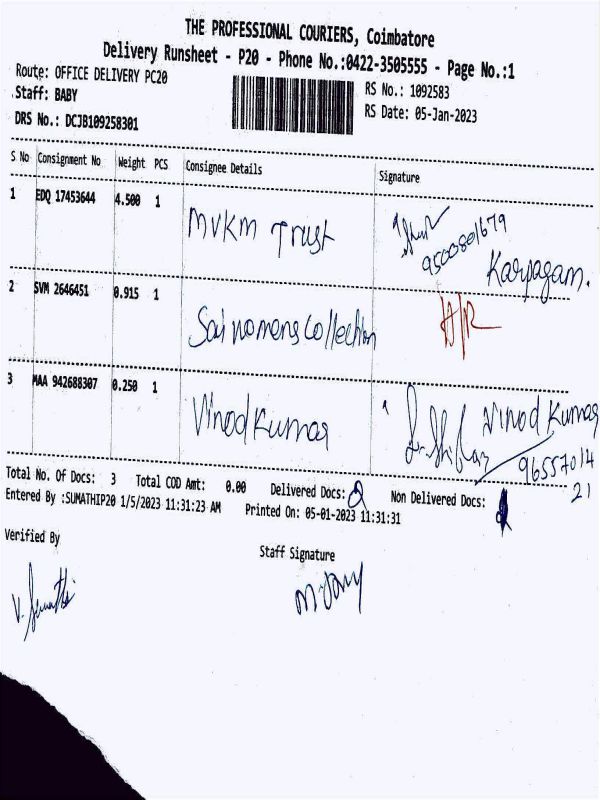 THE PROFESSIONAL COURIERS, Coimbatore
Delivery Runsheet - P20 - Phone No.:0422-3505555 - Page No.:1
Route: OFFICE DELIVERY PC20
RS No.: 1092583
Staff: BABY
RS Date: 05-Jan-2023
DRS No.: DCJB109258301
S No Consignment No Weight PCS Consignee Details Signature
1 EDQ 17453644 4.500 1 MVKM Trust 9500801679
Karpagam.
2 SVM 2646451 0.915 1 Sai womens Collection H/R
3 MAA 942688307 0.250 1 Vinod Kumar Vinod Kumar
96557014
21
Total No. Of Docs: 3 Total COD Amt: 0.00 Delivered Docs: 2 Non Delivered Docs:
Entered By :SUMATHIP20 1/5/2023 11:31:23 AM Printed On: 05-01-2023 11:31:31
Verified By Staff Signature
V. Sumathi